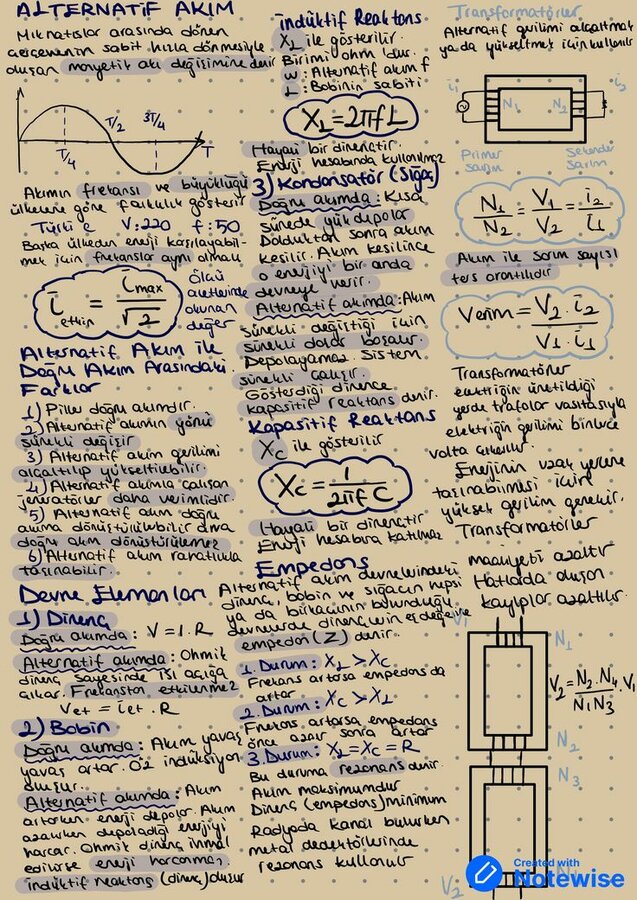 ALTERNATİF AKIM
Mıknatıslar arasında dönen
çerçevenin sabit hızla dönmesiyle
oluşan manyetik akı değişimine denir
T/4
T/2
3T/4
T
Akımın frekansı ve büyüklüğü
ülkelere göre farklılık gösterir
Türkiye V:220 f:50
Başka ülkeden enerji karşılayabil-
mek için frekanslar aynı olmalı
i etkin = imax / √2
Ölçü
aletlerinde
okunan
değer
Alternatif Akım ile
Doğru Akım Arasındaki
Farklar
1) Piller doğru akımdır.
2) Alternatif akımın yönü
sürekli değişir
3) Alternatif akım gerilimi
alçaltılıp yükseltilebilir
4) Alternatif akımla çalışan
jeneratörler daha verimlidir
5) Alternatif akım doğru
akıma dönüştürülebilir ama
doğru akım dönüştürülemez
6) Alternatif akım rahatlıkla
taşınabilir.
Devre Elemanları
1) Direnç
Doğru akımda: V = I.R
Alternatif akımda: Ohmik
direnç sayesinde ısı açığa
çıkar. Frekanstan etkilenmez
Vet = iet . R
2) Bobin
Doğru akımda: Akım yavaş
yavaş artar. Öz indüksiyon
oluşur.
Alternatif akımda: Akım
artarken enerji depolar. Akım
azalırken depoladığı enerjiyi
harcar. Ohmik direnç ihmal
edilirse enerji harcanmaz,
indüktif reaktans (direnç) oluşur
İndüktif Reaktans
XL ile gösterilir.
Birimi ohm 'dur.
w: Alternatif akım f
L: Bobinin sabiti
XL = 2πfL
Hayali bir dirençtir.
Enerji hesabında kullanılmaz
3) Kondansatör (Sığaç)
Doğru akımda: Kısa
sürede yük depolar
Dolduktan sonra akım
kesilir. Akım kesilince
o enerjiyi bir anda
devreye verir.
Alternatif akımda: Akım
sürekli değiştiği için
sürekli dolar boşalır.
Depolayamaz. Sistem
sürekli çalışır.
Gösterdiği dirence
kapasitif reaktans denir.
Kapasitif Reaktans
XC ile gösterilir
XC = 1 / 2πfC
Hayali bir dirençtir
Enerji hesabına katılmaz
Empedans
Alternatif akım devrelerindeki
direnç, bobin ve sığacın hepsi
ya da birkaçının bulunduğu
devrelerde direncin eş değerine
empedan (Z) denir.
1. Durum: XL > XC
Frekans artarsa empedans da
artar
2. Durum: XC > XL
Frekans artarsa empedans
önce azalır sonra artar
3. Durum: XL = XC = R
Bu duruma rezonans denir.
Akım maksimumdur
Direnç (empedans) minimum
Radyoda kanal bulurken
metal dedektörlerinde
rezonans kullanılır
Transformatörler
Alternatif gerilimi alçaltmak
ya da yükseltmek için kullanılır
i1
N1
N2
i2
Primer
sarım
Sekonder
sarım
N1/N2 = V1/V2 = i2/i1
Akım ile sarım sayısı
ters orantılıdır
Verim = V2 . i2 / V1 . i1
Transformatörler
elektriğin üretildiği
yerde trafolar vasıtasıyla
elektriğin gerilimi binlerce
volta çıkarılır.
Enerjinin uzak yerlere
taşınabilmesi için
yüksek gerilim gerekir.
Transformatörler
maaliyeti azaltır
Hatlarda oluşan
kayıplar azaltılır.
V1
N1
V2 = N2 . N4 / N1 N3 . V1
N2
N3
V2
Created with
Notewise